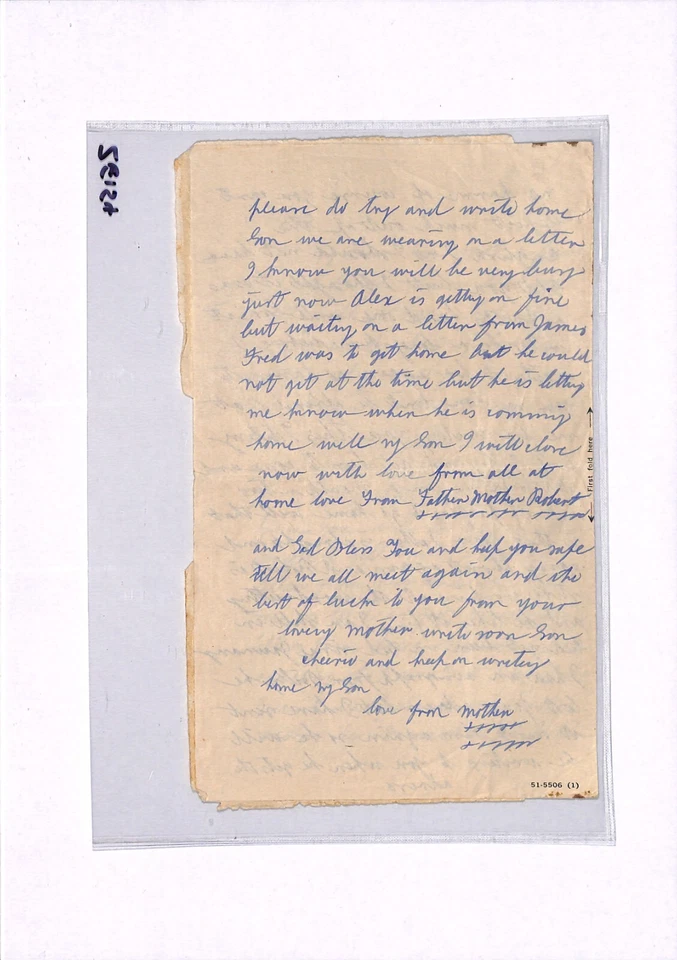 please do try and write home
Son we are wearing on a letter
I know you will be very busy
just now Alex is getty on fine
but waitny on a letter from James
Fred was to get home but he could
not get at the time but he is lettny
me know when he is comming
home well my Son I will close
now with love from all at
home love From Father Mother Robert
and God Bless You and keep you safe
till we all meet again and the
best of luck to you from your
lovery mother write soon Son
cheerio and keep on writny
home my Son
love from mother
First fold here
51-5506 (1)